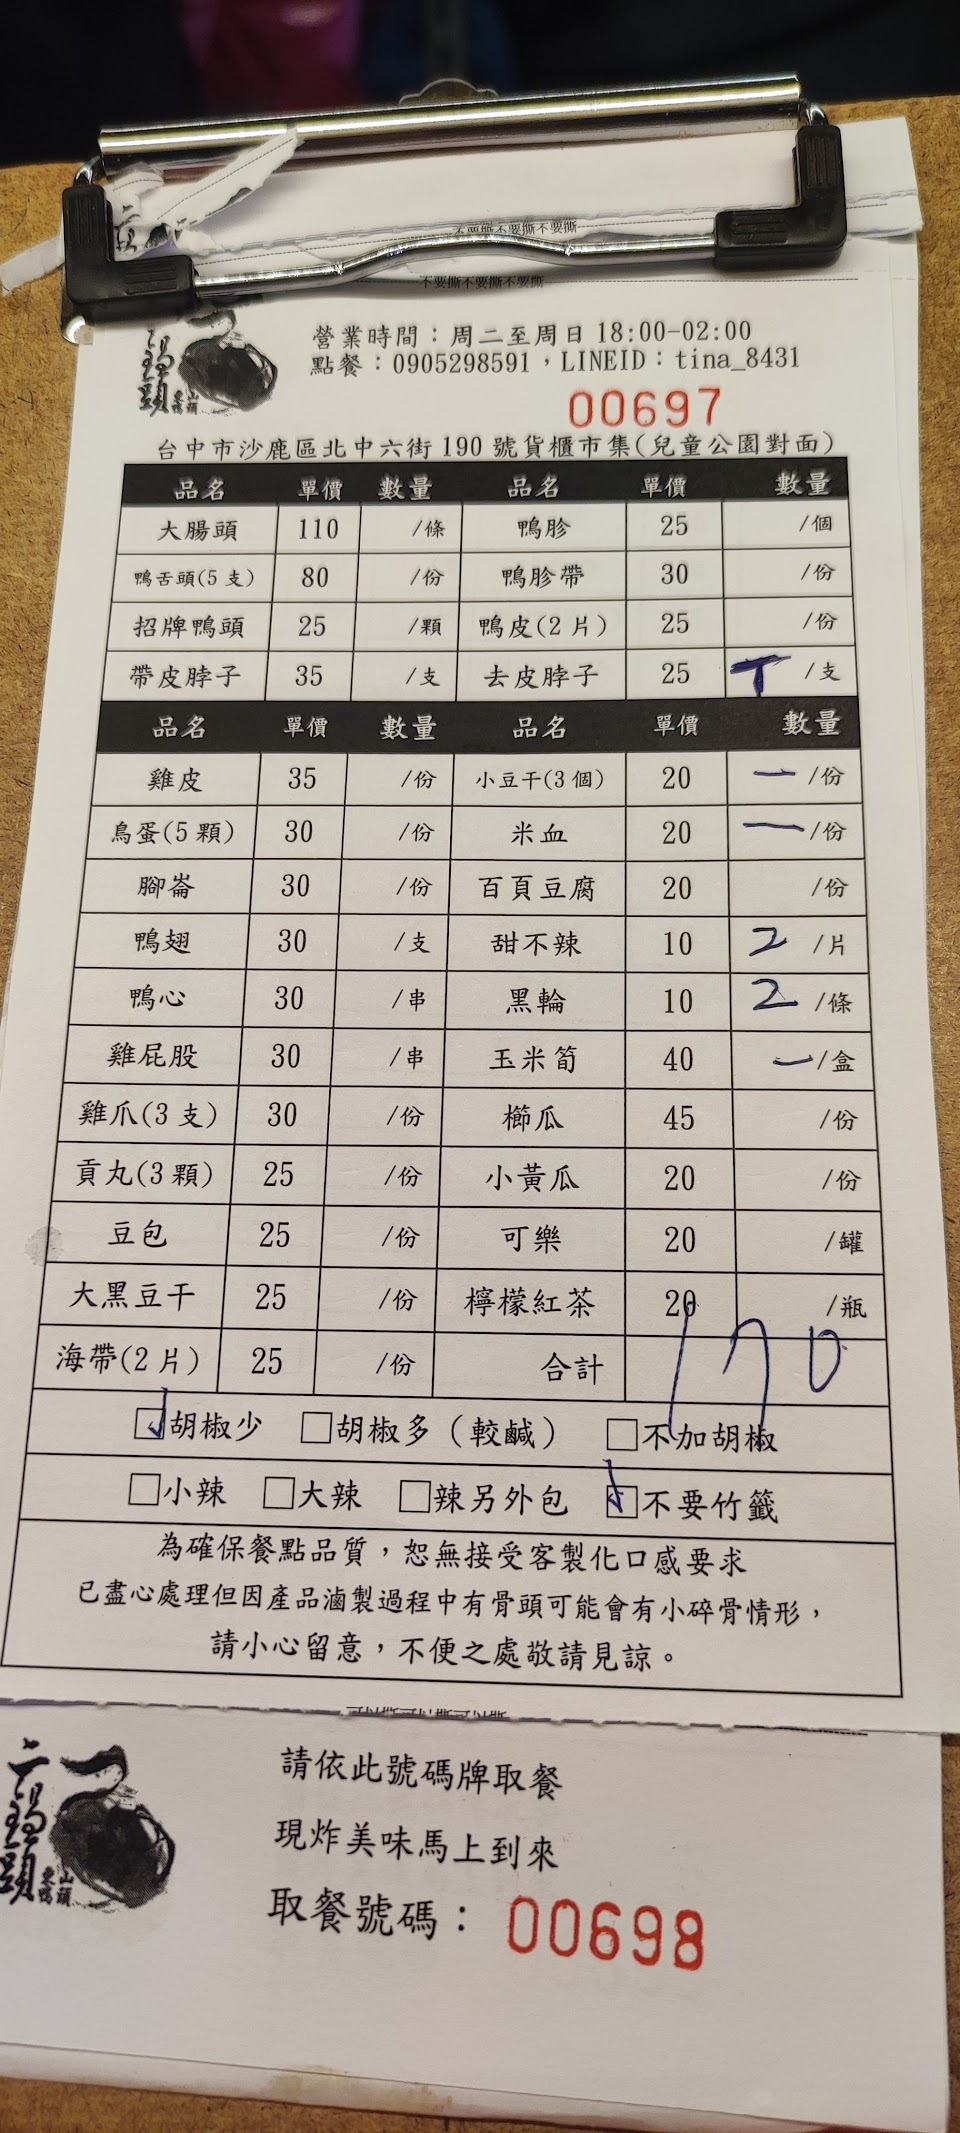 不要撕不要撕不要撕
不要撕不要撕不要撕
營業時間：周二至周日 18:00-02:00
點餐：0905298591，LINEID：tina_8431
00697
台中市沙鹿區北中六街 190 號貨櫃市集(兒童公園對面)
品名 單價 數量 品名 單價 數量
大腸頭 110 /條 鴨胗 25 /個
鴨舌頭(5 支) 80 /份 鴨胗帶 30 /份
招牌鴨頭 25 /顆 鴨皮(2 片) 25 /份
帶皮脖子 35 /支 去皮脖子 25 T /支
品名 單價 數量 品名 單價 數量
雞皮 35 /份 小豆干(3 個) 20 一 /份
鳥蛋(5 顆) 30 /份 米血 20 一 /份
腳崙 30 /份 百頁豆腐 20 /份
鴨翅 30 /支 甜不辣 10 2 /片
鴨心 30 /串 黑輪 10 2 /條
雞屁股 30 /串 玉米筍 40 一 /盒
雞爪(3 支) 30 /份 櫛瓜 45 /份
貢丸(3 顆) 25 /份 小黃瓜 20 /份
豆包 25 /份 可樂 20 /罐
大黑豆干 25 /份 檸檬紅茶 20 /瓶
海帶(2 片) 25 /份 合計 170
☑胡椒少 □胡椒多（較鹹） □不加胡椒
□小辣 □大辣 □辣另外包 ☑不要竹籤
為確保餐點品質，恕無接受客製化口感要求
已盡心處理但因產品滷製過程中有骨頭可能會有小碎骨情形，
請小心留意，不便之處敬請見諒。
請依此號碼牌取餐
現炸美味馬上到來
取餐號碼： 00698